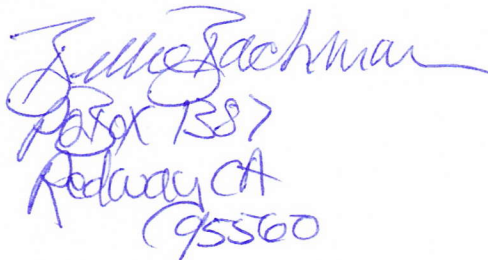 Billie Bachman
PO Box 1387
Redway CA
95560